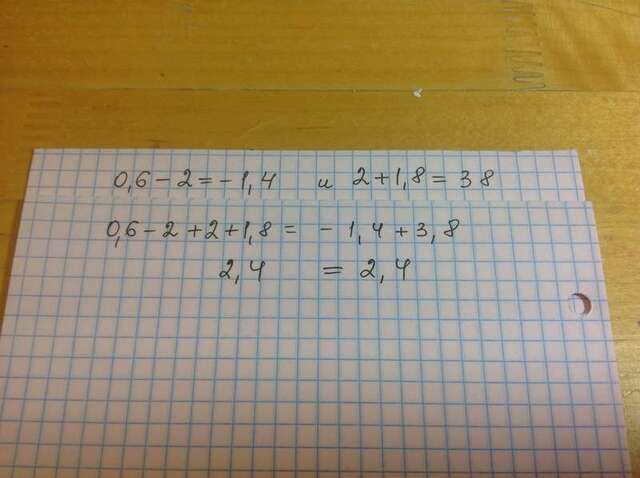 0,6 - 2 = - 1,4 и 2 + 1,8 = 38
0,6 - 2 + 2 + 1,8 = - 1,4 + 3,8
2,4 = 2,4